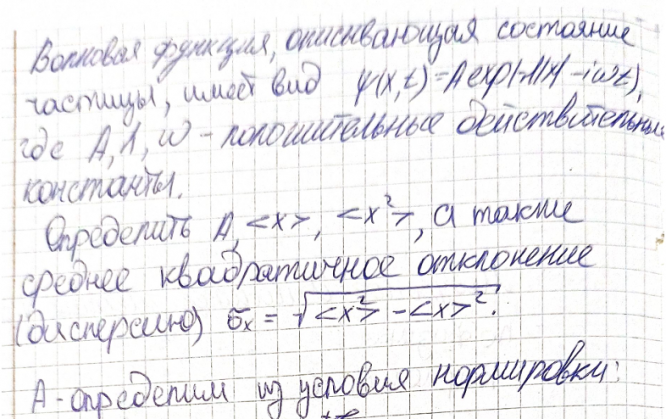 Волновая функция, описывающая состояние
частицы, имеет вид ψ(x,t)=A exp(-λ|x|-iωt),
где A, λ, ω - положительные действительные
константы.
Определить A, <x>, <x²>, а также
среднее квадратичное отклонение
(дисперсию) σₓ = √<x²> - <x>².
A - определим из условия нормировки: